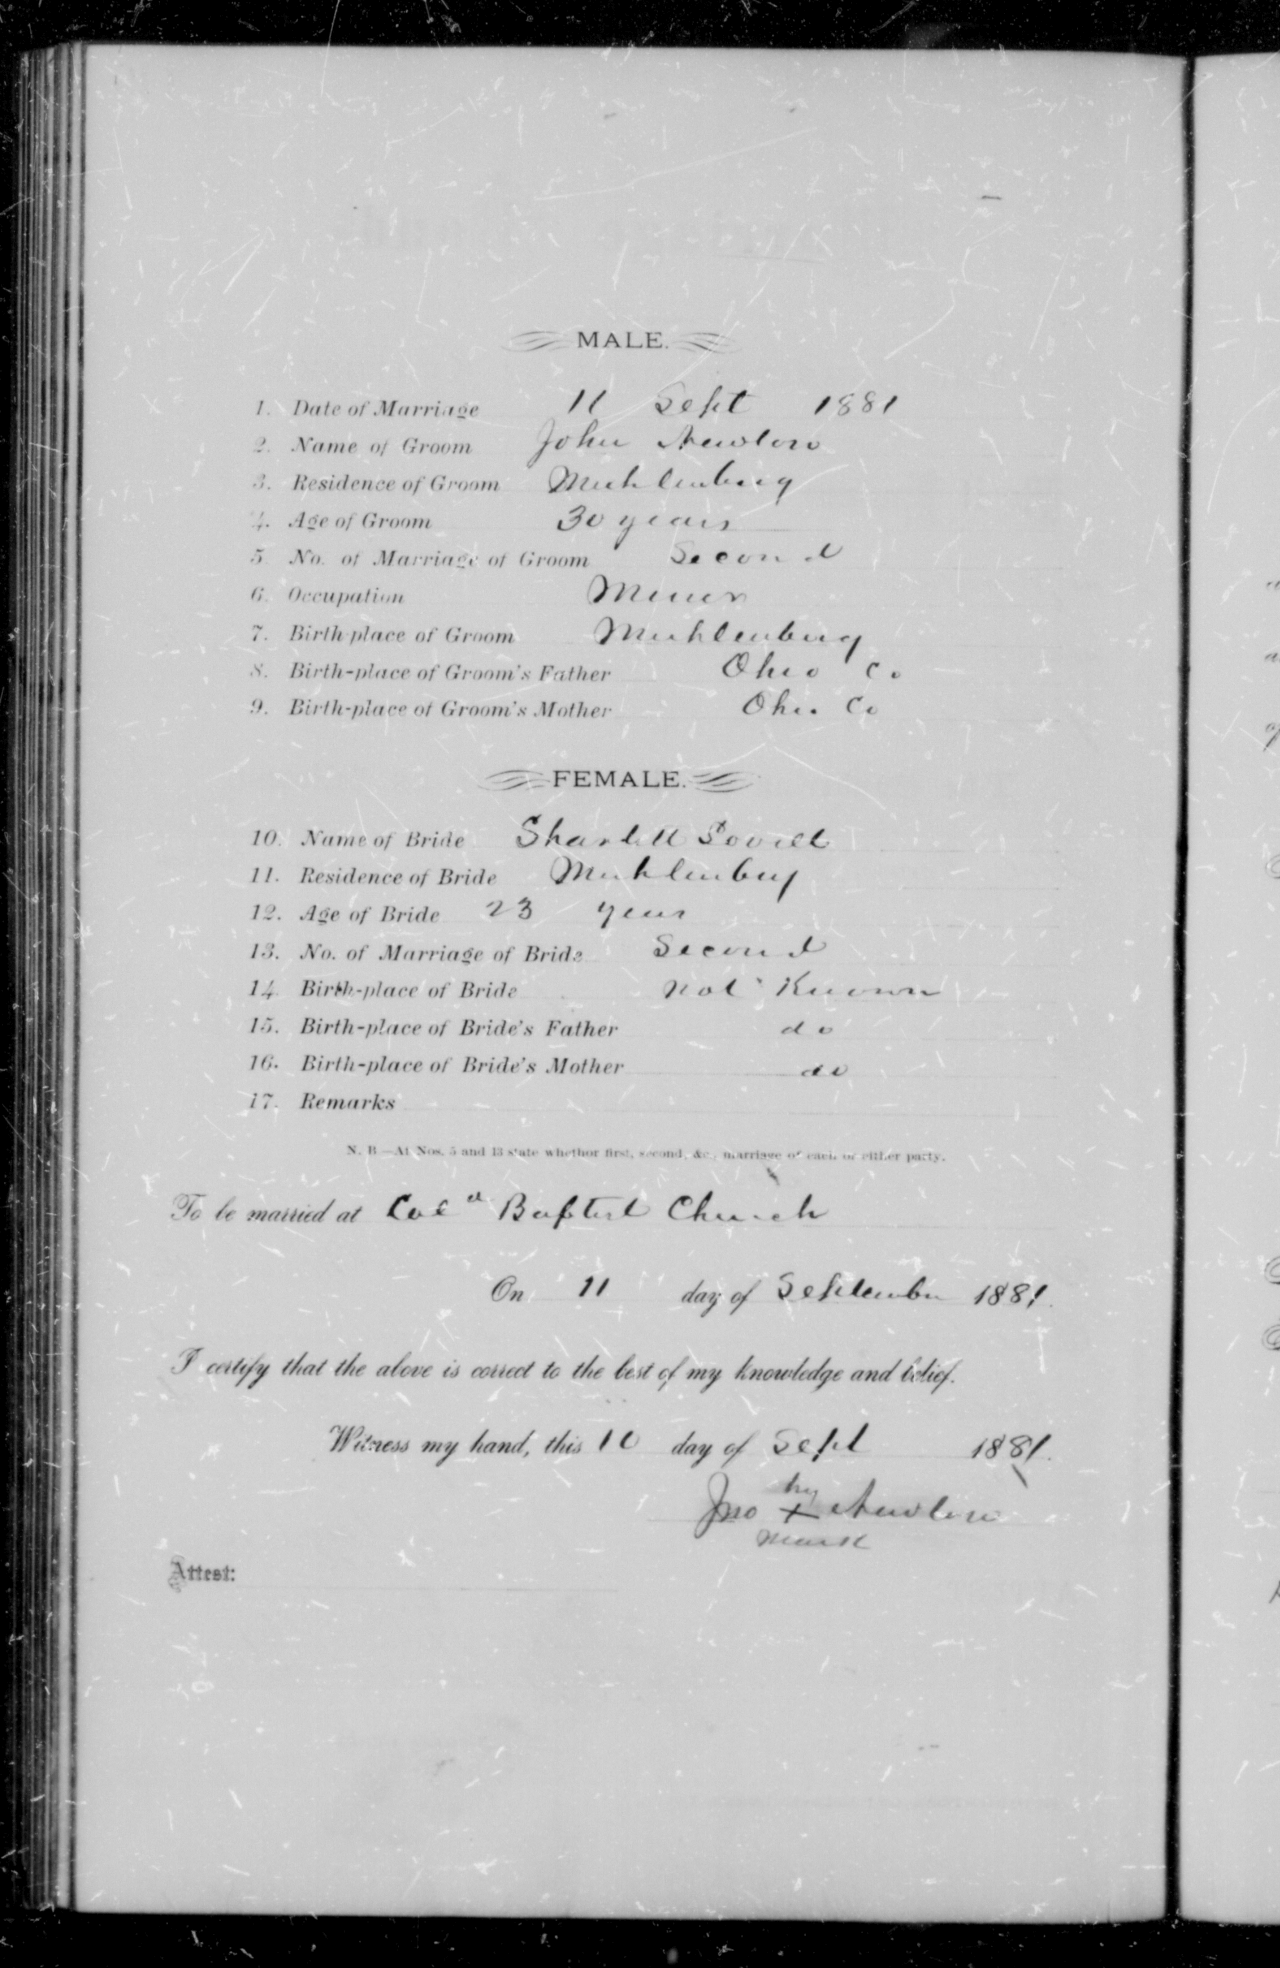 MALE.
1. Date of Marriage 11 Sept 1881
2. Name of Groom John Newton
3. Residence of Groom Muhlenburg
4. Age of Groom 30 years
5. No. of Marriage of Groom Second
6. Occupation Miner
7. Birth-place of Groom Muhlenburg
8. Birth-place of Groom's Father Ohio Co
9. Birth-place of Groom's Mother Ohio Co
FEMALE.
10. Name of Bride Sharlett
11. Residence of Bride Muhlenburg
12. Age of Bride 23 years
13. No. of Marriage of Bride Second
14. Birth-place of Bride Not Known
15. Birth-place of Bride's Father do
16. Birth-place of Bride's Mother do
17. Remarks
N. B.—At Nos. 5 and 13 state whether first, second, &c., marriage of each or either party.
To be married at Cold Baptist Church
On 11 day of September 1881.
I certify that the above is correct to the best of my knowledge and belief.
Witness my hand, this 10 day of Sept 1881.
his
Jno X Newton
mark
Attest: